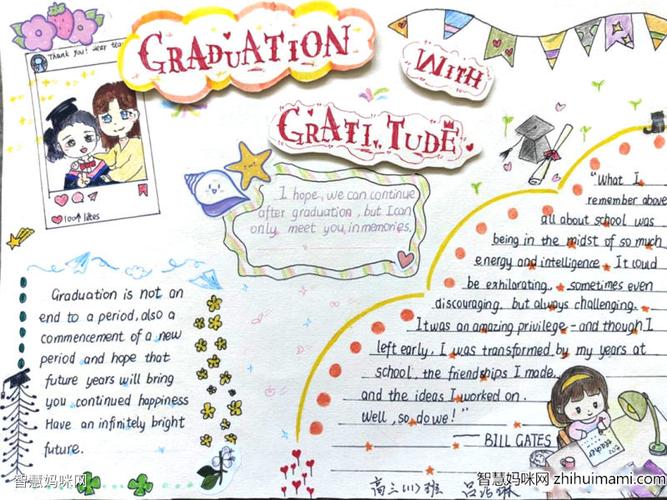 Thank you! dear tea
GRADUATION
WITH
GRATI.TUDE
100+ likes
I hope, we can continue
after graduation, but I can
only meet you, in memories.
Graduation is not an
end to a period, also a
commencement of a new
period and hope that
future years will bring
you continued happiness
Have an infinitely bright
future.
"What I
remember above
all about school was
being in the midst of so much
energy and intelligence. It could
be exhilorating, sometimes even
discouraging, but always challenging.
It was an amazing privilege - and though I
left early, I was transformed by my years at
school, the friendships I made,
and the ideas I worked on.
Well, so do we!"
— BILL GATES
高三(1)班 吕
智慧妈咪网
智慧妈咪网 zhihuimami.com